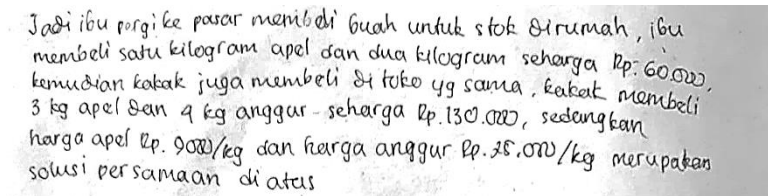 Jadi ibu pergi ke pasar membeli buah untuk stok dirumah, ibu
membeli satu kilogram apel dan dua kilogram seharga Rp. 60.000,
kemudian kakak juga membeli di toko yg sama, kakak membeli
3 kg apel dan 4 kg anggur seharga Rp. 130.000, sedangkan
harga apel Rp. 9000/kg dan harga anggur Rp. 25.000/kg merupakan
solusi persamaan di atas